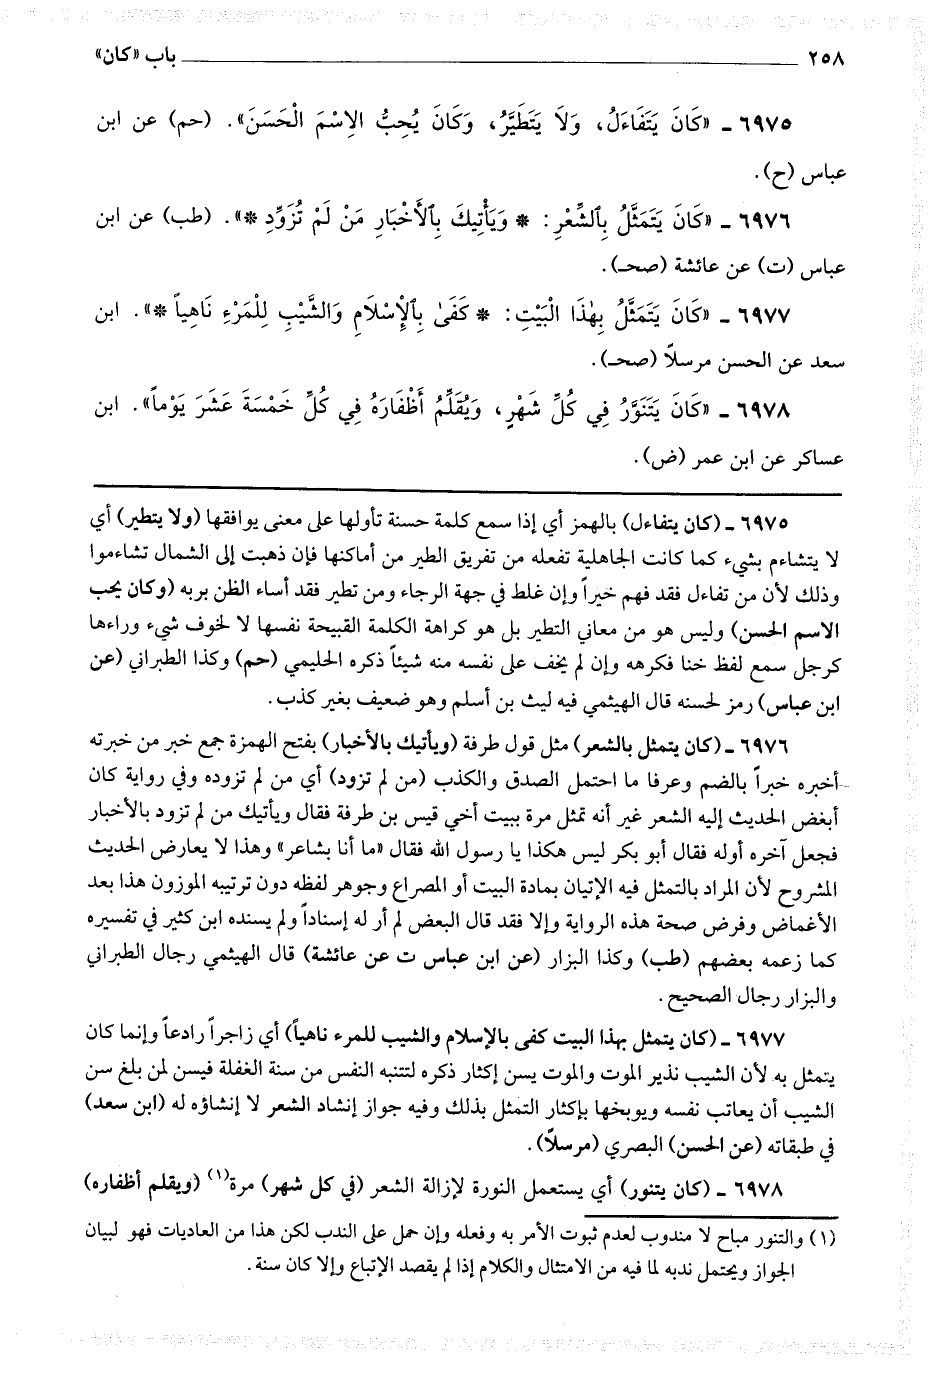 ٢٥٨ باب «كان»
٦٩٧٥ ـ «كَانَ يَتَفَاءَلُ، وَلَا يَتَطَيَّرُ، وَكَانَ يُحِبُّ الِاسْمَ الْحَسَنَ». (حم) عن ابن
عباس (ح).
٦٩٧٦ ـ «كَانَ يَتَمَثَّلُ بِٱلشِّعْرِ: * وَيَأْتِيكَ بِٱلأَخْبَارِ مَنْ لَمْ تُزَوِّدِ *». (طب) عن ابن
عباس (ت) عن عائشة (صحـ).
٦٩٧٧ ـ «كَانَ يَتَمَثَّلُ بِهٰذَا الْبَيْتِ: * كَفَىٰ بِٱلْإِسْلَامِ وَالشَّيْبِ لِلْمَرْءِ نَاهِياً *». ابن
سعد عن الحسن مرسلاً (صحـ).
٦٩٧٨ ـ «كَانَ يَتَنَوَّرُ فِي كُلِّ شَهْرٍ، وَيُقَلِّمُ أَظْفَارَهُ فِي كُلِّ خَمْسَةَ عَشَرَ يَوْماً». ابن
عساكر عن ابن عمر (ض).
٦٩٧٥ ـ (كان يتفاءل) بالهمز أي إذا سمع كلمة حسنة تأولها على معنى يوافقها (ولا يتطير) أي
لا يتشاءم بشيء كما كانت الجاهلية تفعله من تفريق الطير من أماكنها فإن ذهبت إلى الشمال تشاءموا
وذلك لأن من تفاءل فقد فهم خيراً وإن غلط في جهة الرجاء ومن تطير فقد أساء الظن بربه (وكان يحب
الاسم الحسن) وليس هو من معاني التطير بل هو كراهة الكلمة القبيحة نفسها لا لخوف شيء وراءها
كرجل سمع لفظ خنا فكرهه وإن لم يخف على نفسه منه شيئاً ذكره الحليمي (حم) وكذا الطبراني (عن
ابن عباس) رمز لحسنه قال الهيثمي فيه ليث بن أسلم وهو ضعيف بغير كذب.
٦٩٧٦ ـ (كان يتمثل بالشعر) مثل قول طرفة (ويأتيك بالأخبار) بفتح الهمزة جمع خبر من خبرته
أخبره خبراً بالضم وعرفا ما احتمل الصدق والكذب (من لم تزود) أي من لم تزوده وفي رواية كان
أبغض الحديث إليه الشعر غير أنه تمثل مرة ببيت أخي قيس بن طرفة فقال ويأتيك من لم تزود بالأخبار
فجعل آخره أوله فقال أبو بكر ليس هكذا يا رسول الله فقال «ما أنا بشاعر» وهذا لا يعارض الحديث
المشروح لأن المراد بالتمثل فيه الإتيان بمادة البيت أو المصراع وجوهر لفظه دون ترتيبه الموزون هذا بعد
الأغماض وفرض صحة هذه الرواية وإلا فقد قال البعض لم أر له إسناداً ولم يسنده ابن كثير في تفسيره
كما زعمه بعضهم (طب) وكذا البزار (عن ابن عباس ت عن عائشة) قال الهيثمي رجال الطبراني
والبزار رجال الصحيح.
٦٩٧٧ ـ (كان يتمثل بهذا البيت كفى بالإسلام والشيب للمرء ناهياً) أي زاجراً رادعاً وإنما كان
يتمثل به لأن الشيب نذير الموت والموت يسن إكثار ذكره لتتنبه النفس من سنة الغفلة فيسن لمن بلغ سن
الشيب أن يعاتب نفسه ويوبخها بإكثار التمثل بذلك وفيه جواز إنشاد الشعر لا إنشاؤه له (ابن سعد)
في طبقاته (عن الحسن) البصري (مرسلاً).
٦٩٧٨ ـ (كان يتنور) أي يستعمل النورة لإزالة الشعر (في كل شهر) مرة(١) (ويقلم أظفاره)
(١) والتنور مباح لا مندوب لعدم ثبوت الأمر به وفعله وإن حمل على الندب لكن هذا من العاديات فهو لبيان
الجواز ويحتمل ندبه لما فيه من الامتثال والكلام إذا لم يقصد الإتباع وإلا كان سنة.